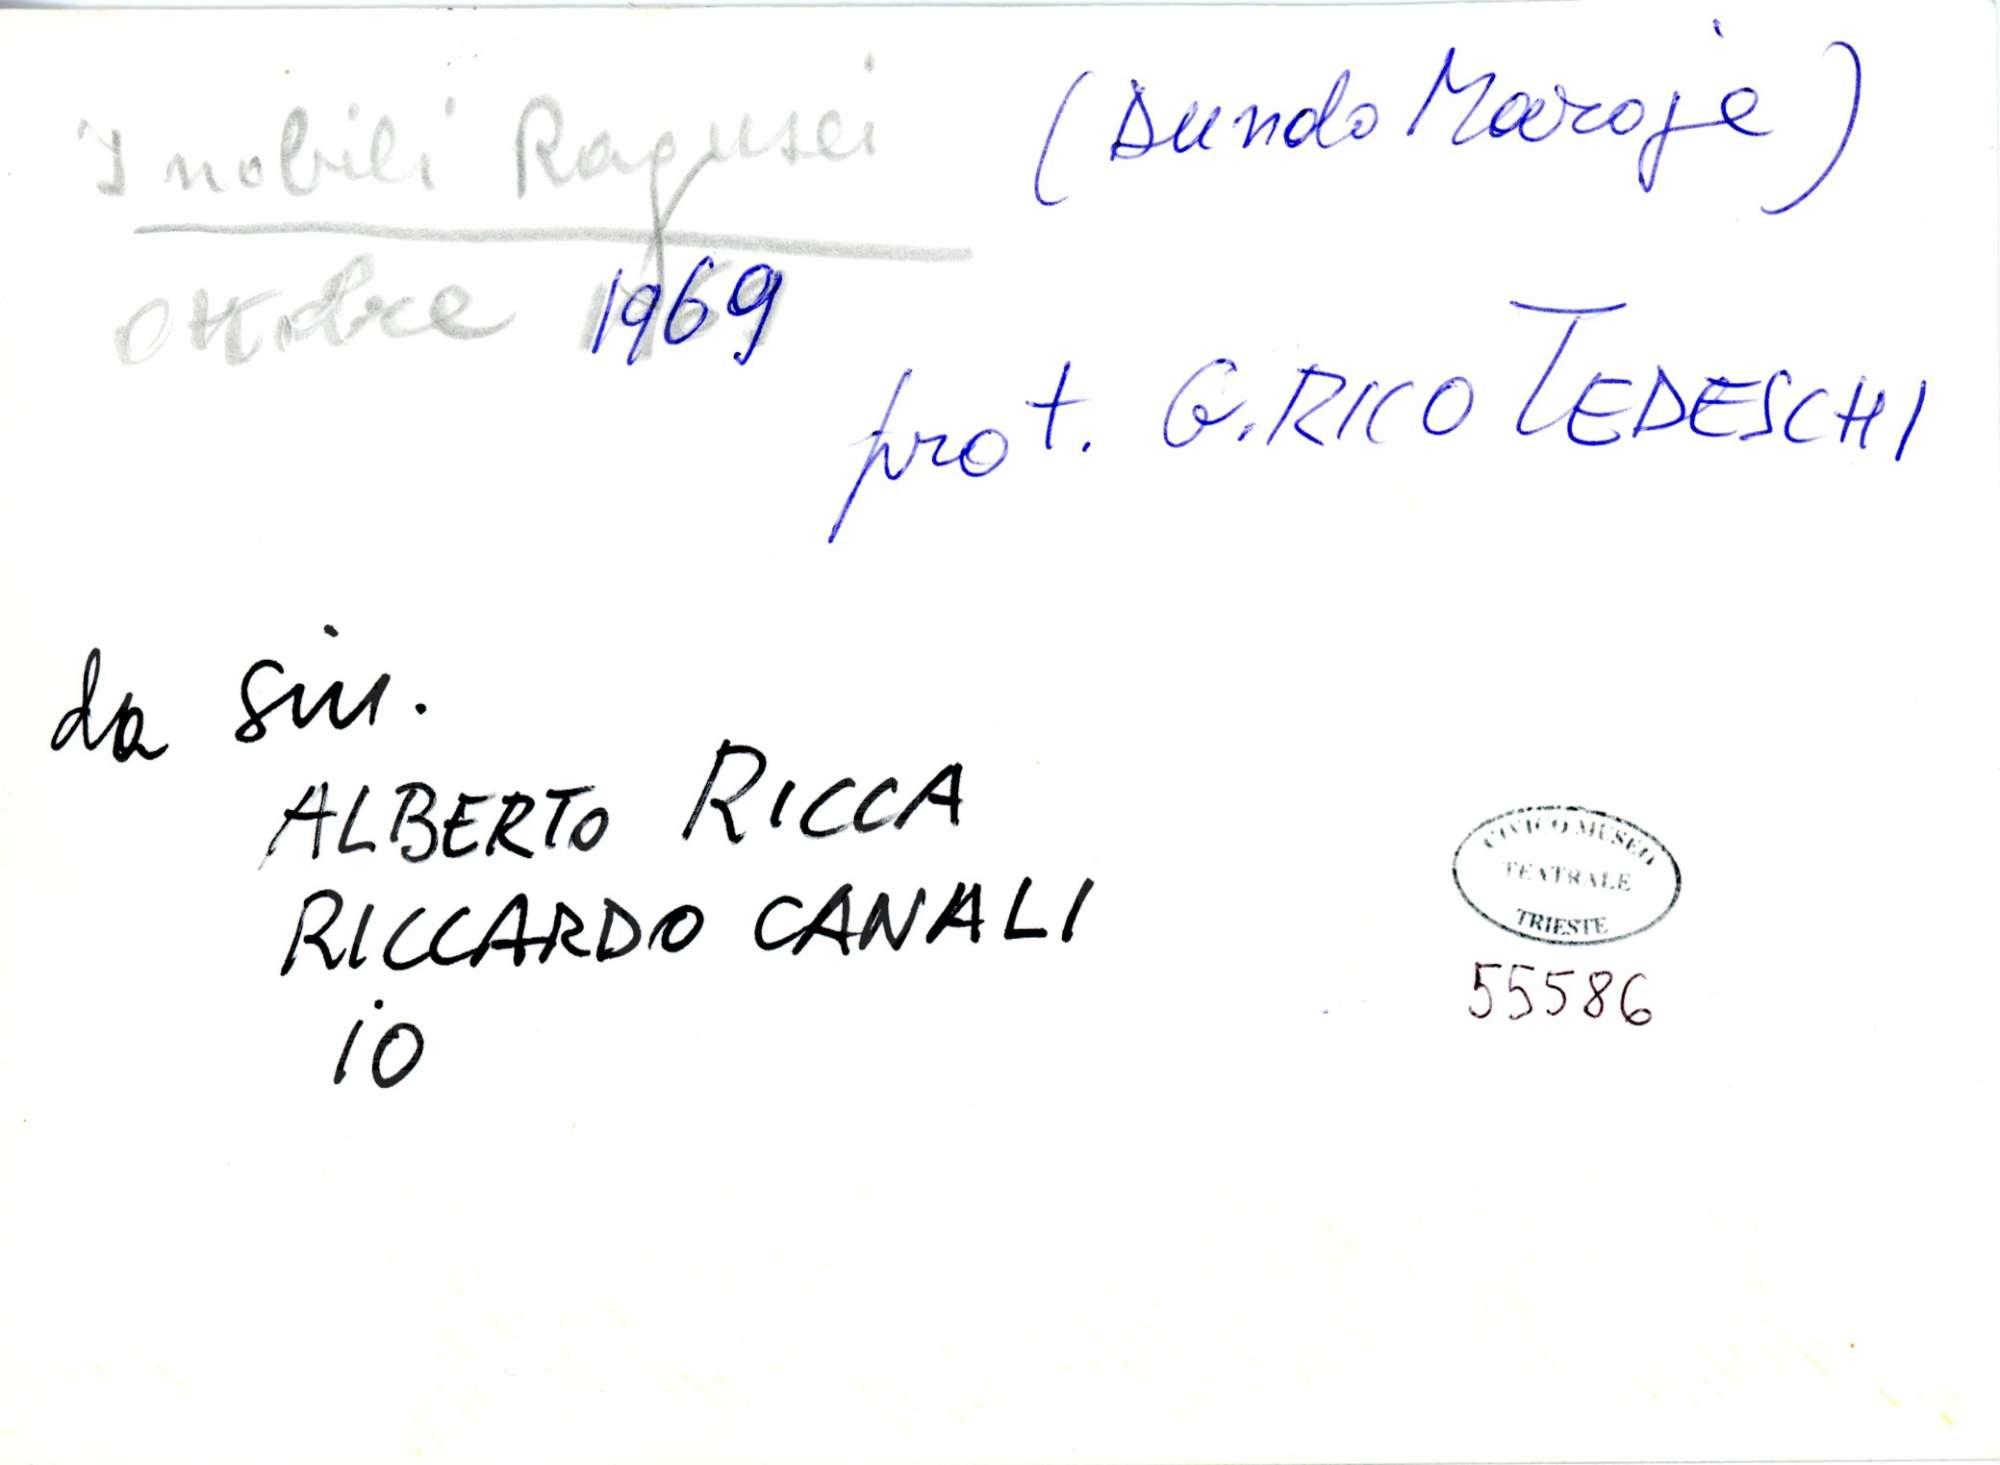 I nobili Ragusei (Dundo Maroje)
ottobre 1969
prot. G.RICO TEDESCHI
da sin.
ALBERTO RICCA
RICCARDO CANALI
io
CIVICO MUSEO
TEATRALE
TRIESTE
55586